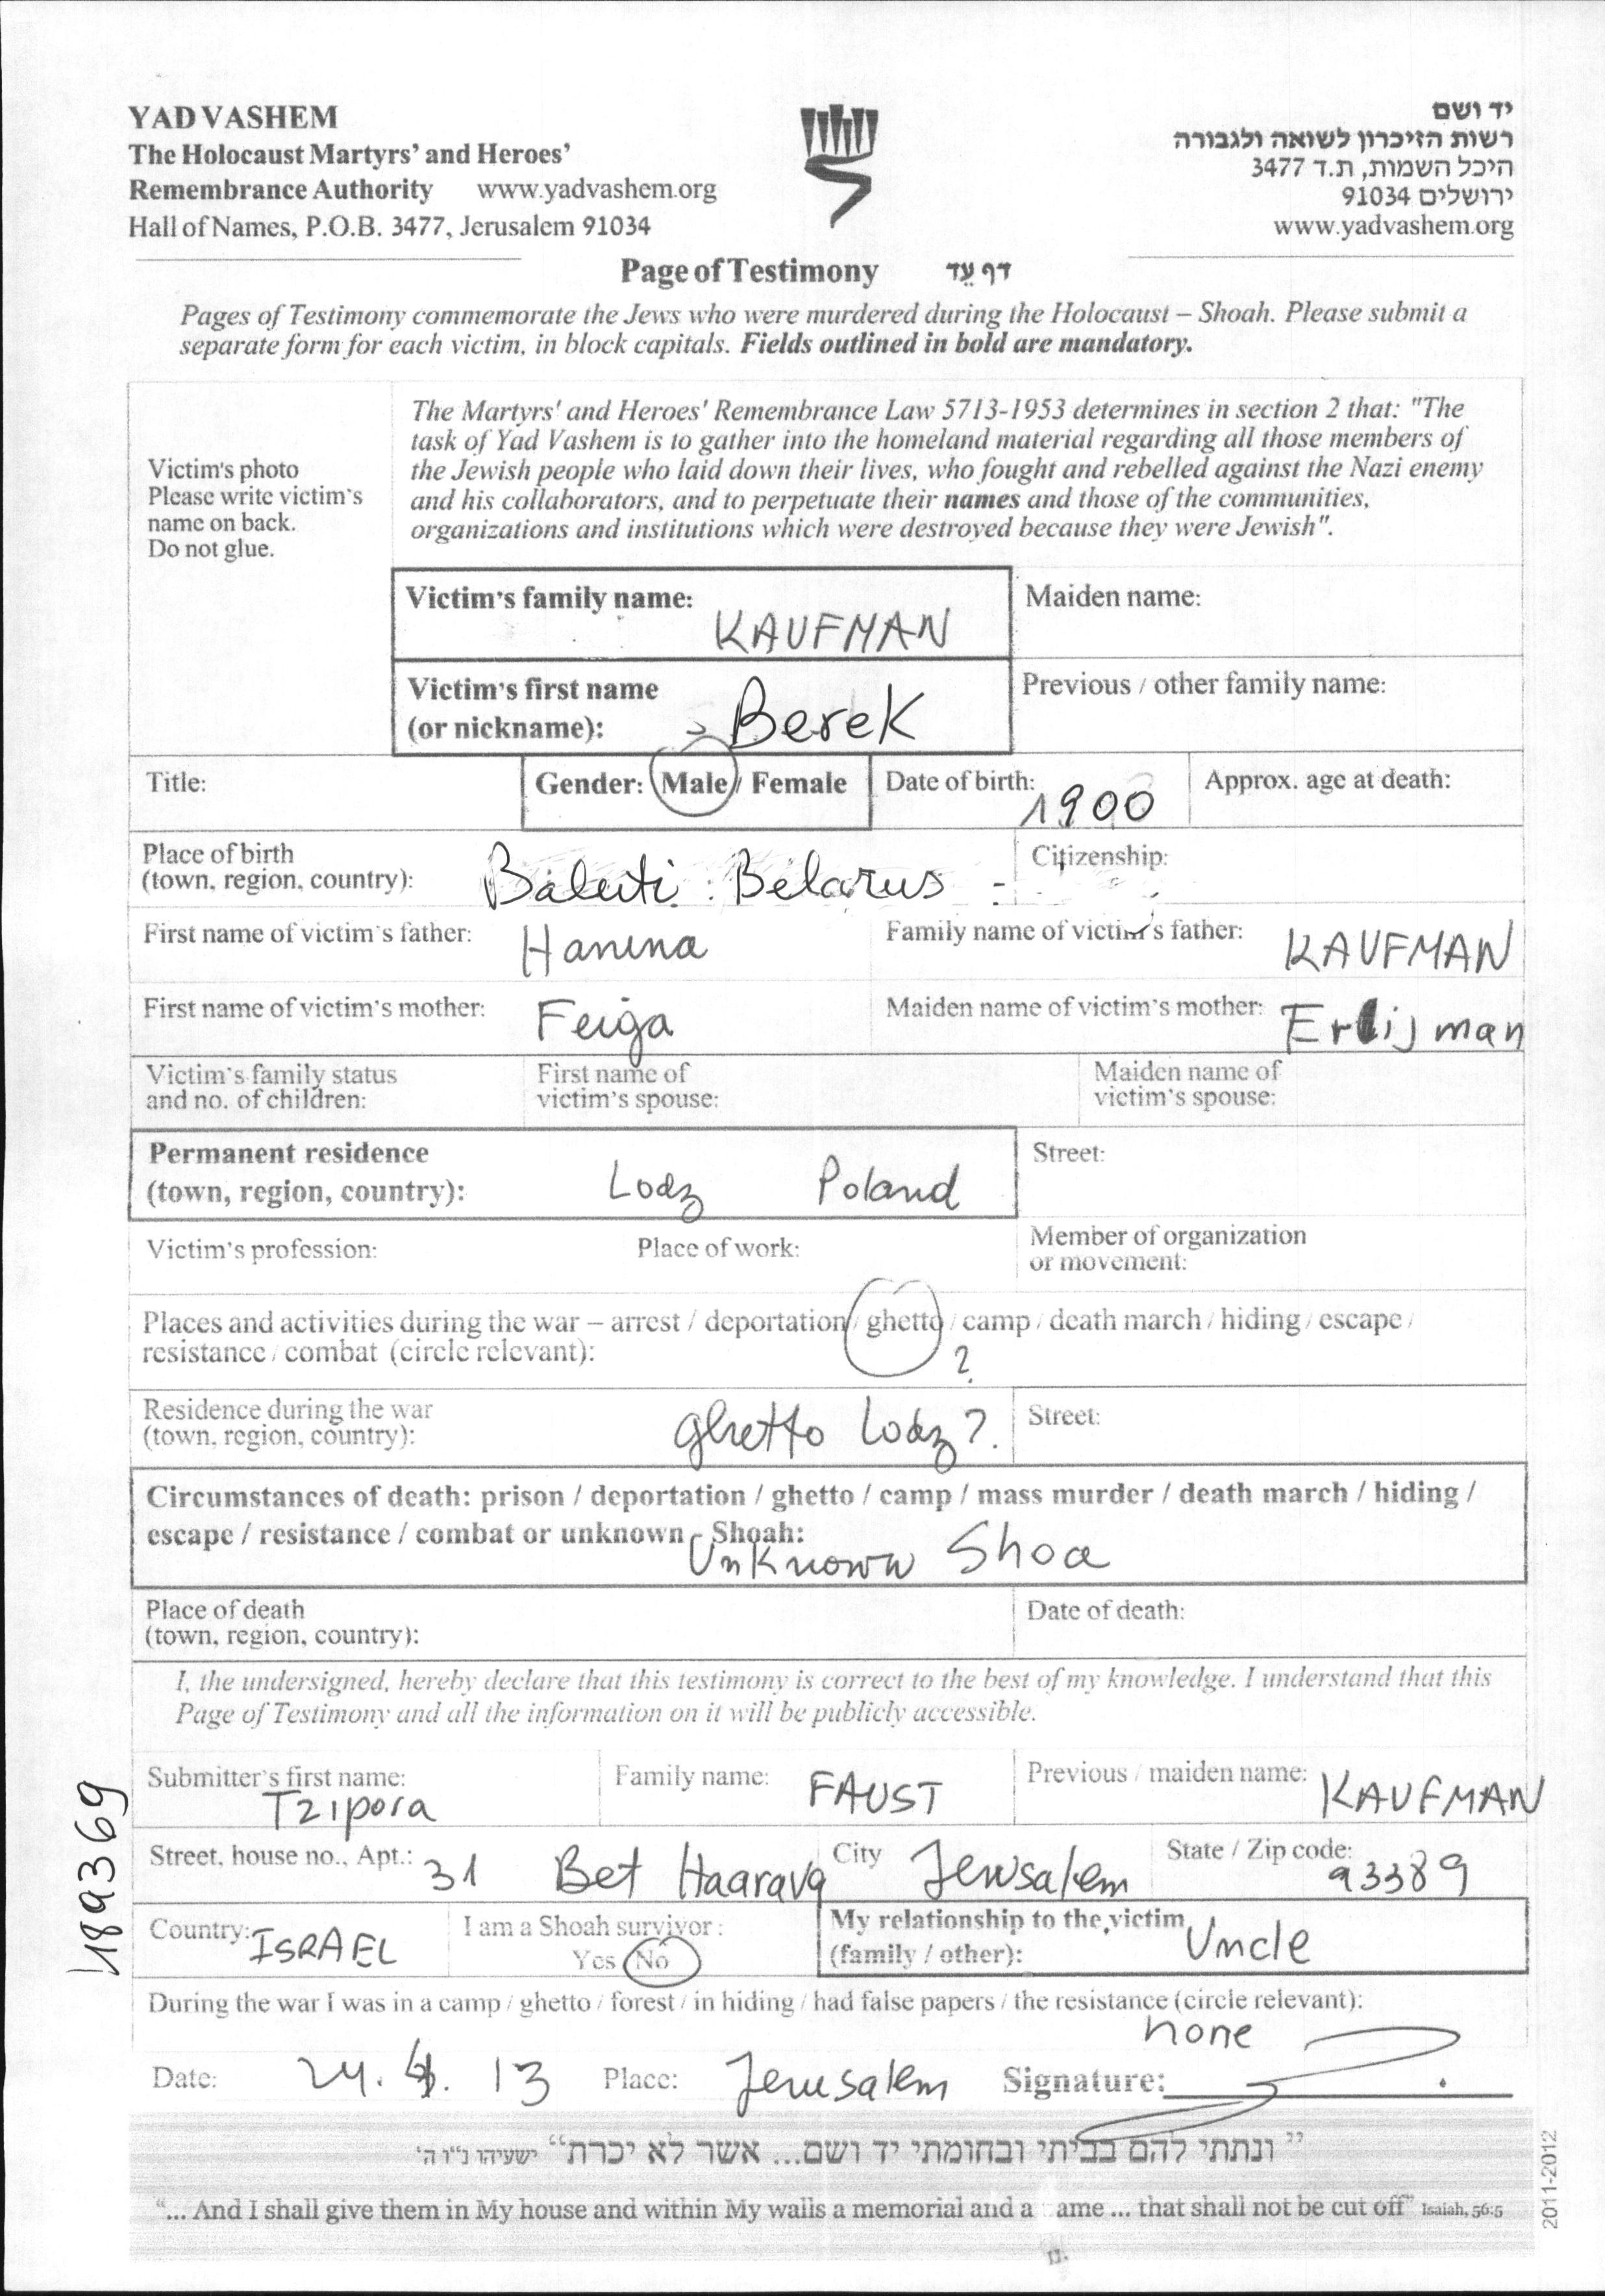 YAD VASHEM
The Holocaust Martyrs' and Heroes'
Remembrance Authority www.yadvashem.org
Hall of Names, P.O.B. 3477, Jerusalem 91034
יד ושם
רשות הזיכרון לשואה ולגבורה
היכל השמות, ת.ד 3477
ירושלים 91034
www.yadvashem.org
Page of Testimony דף עֵד
Pages of Testimony commemorate the Jews who were murdered during the Holocaust – Shoah. Please submit a
separate form for each victim, in block capitals. Fields outlined in bold are mandatory.
Victim's photo
Please write victim's
name on back.
Do not glue.
The Martyrs' and Heroes' Remembrance Law 5713-1953 determines in section 2 that: "The
task of Yad Vashem is to gather into the homeland material regarding all those members of
the Jewish people who laid down their lives, who fought and rebelled against the Nazi enemy
and his collaborators, and to perpetuate their names and those of the communities,
organizations and institutions which were destroyed because they were Jewish".
Victim's family name: KAUFMAN
Maiden name:
Victim's first name
(or nickname): Berek
Previous / other family name:
Title:
Gender: Male / Female
Date of birth: 1900
Approx. age at death:
Place of birth
(town, region, country): Baluti Belarus
Citizenship:
First name of victim's father: Hanina
Family name of victim's father: KAUFMAN
First name of victim's mother: Feiga
Maiden name of victim's mother:
Victim's family status
and no. of children:
First name of
victim's spouse:
Maiden name of
victim's spouse:
Permanent residence
(town, region, country): Lodz Poland
Street:
Victim's profession:
Place of work:
Member of organization
or movement:
Places and activities during the war – arrest / deportation / ghetto / camp / death march / hiding / escape /
resistance / combat (circle relevant): ?
Residence during the war
(town, region, country): ghetto Lodz ?
Street:
Circumstances of death: prison / deportation / ghetto / camp / mass murder / death march / hiding /
escape / resistance / combat or unknown - Shoah:
Unknown Shoa
Place of death
(town, region, country):
Date of death:
I, the undersigned, hereby declare that this testimony is correct to the best of my knowledge. I understand that this
Page of Testimony and all the information on it will be publicly accessible.
Submitter's first name: Tzipora
Family name: FAUST
Previous / maiden name: KAUFMAN
Street, house no., Apt.: 31 Bet Haarava
City Jerusalem
State / Zip code: 93389
Country: ISRAEL
I am a Shoah survivor :
Yes No
My relationship to the victim
(family / other): Uncle
During the war I was in a camp / ghetto / forest / in hiding / had false papers / the resistance (circle relevant):
none
Date: 24. 4. 13 Place: Jerusalem Signature:
"ונתתי להם בביתי ובחומתי יד ושם... אשר לא יכרת" ישעיהו נ"ו ה'
"... And I shall give them in My house and within My walls a memorial and a ame ... that shall not be cut off" Isaiah, 56:5
2011-2012